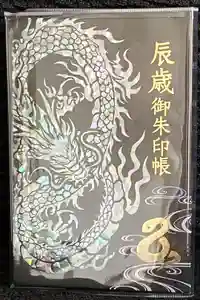 辰歳御朱印帳